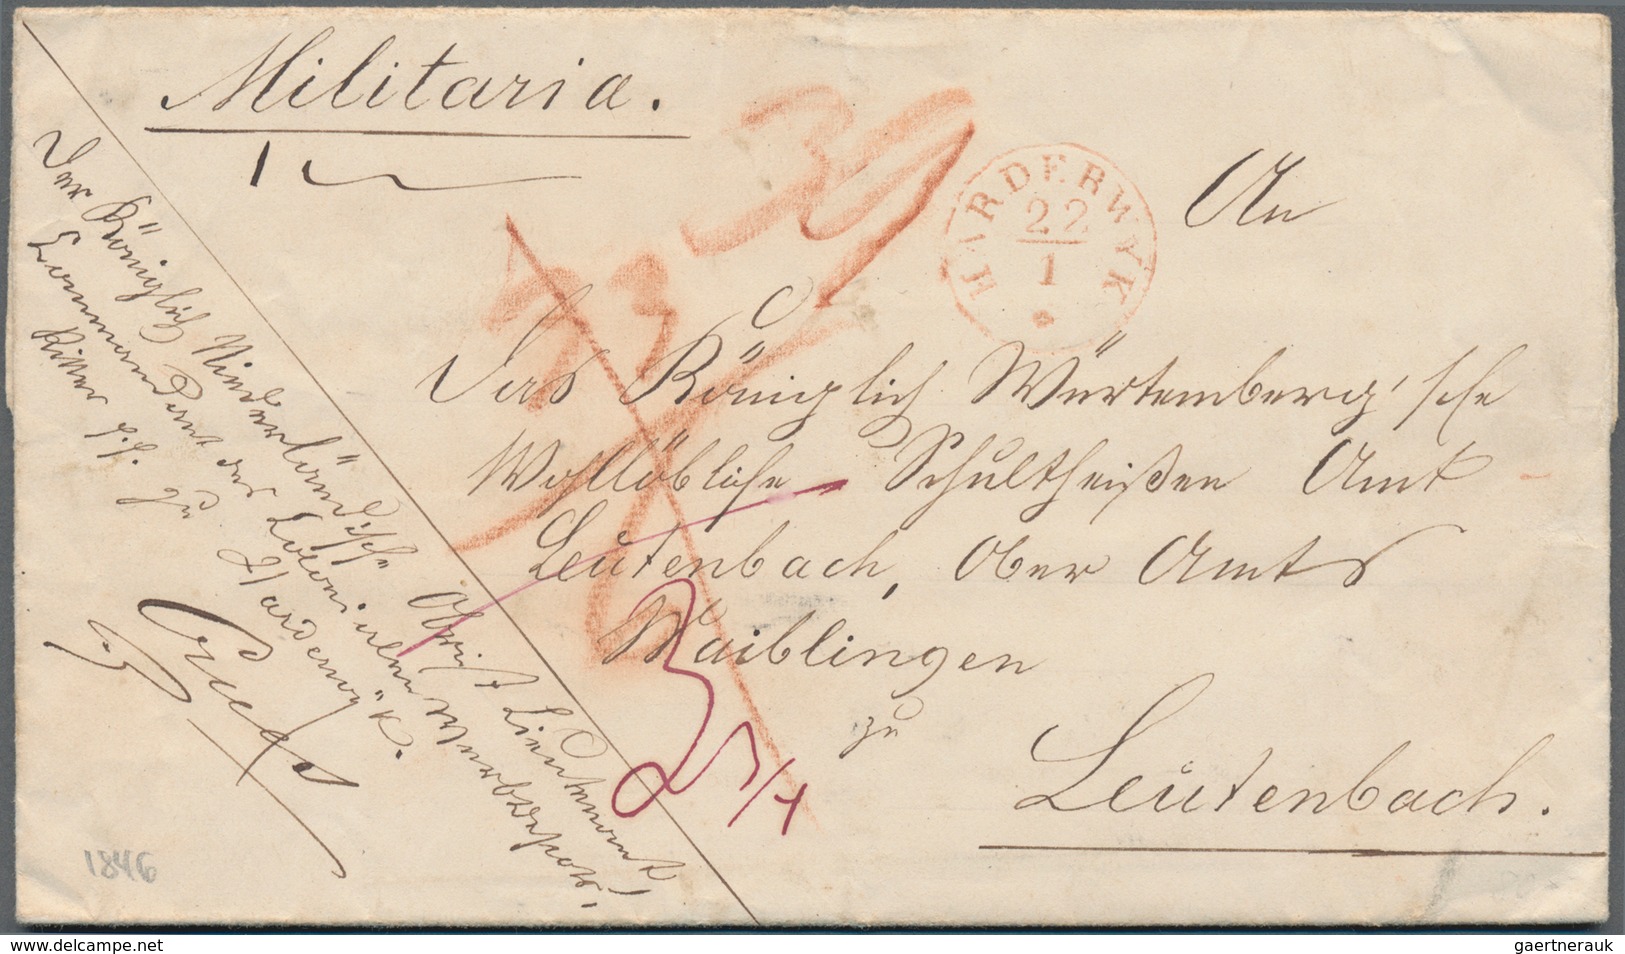 Militaria.
HARDERWYK
22
1
An
Das Königlich Würtemberg'sche
Wohllöbliche Schultheißen Amt
Leutenbach, Ober Amts
Waiblingen
zu
Leutenbach.
Der Königlich Niederländische Obrist Lieutenant,
Commandant des Colonialen Werbdepots,
Ritter p.p. zu Harderwÿk.
30
33
1846
www.delcampe.net
gaertnerauk